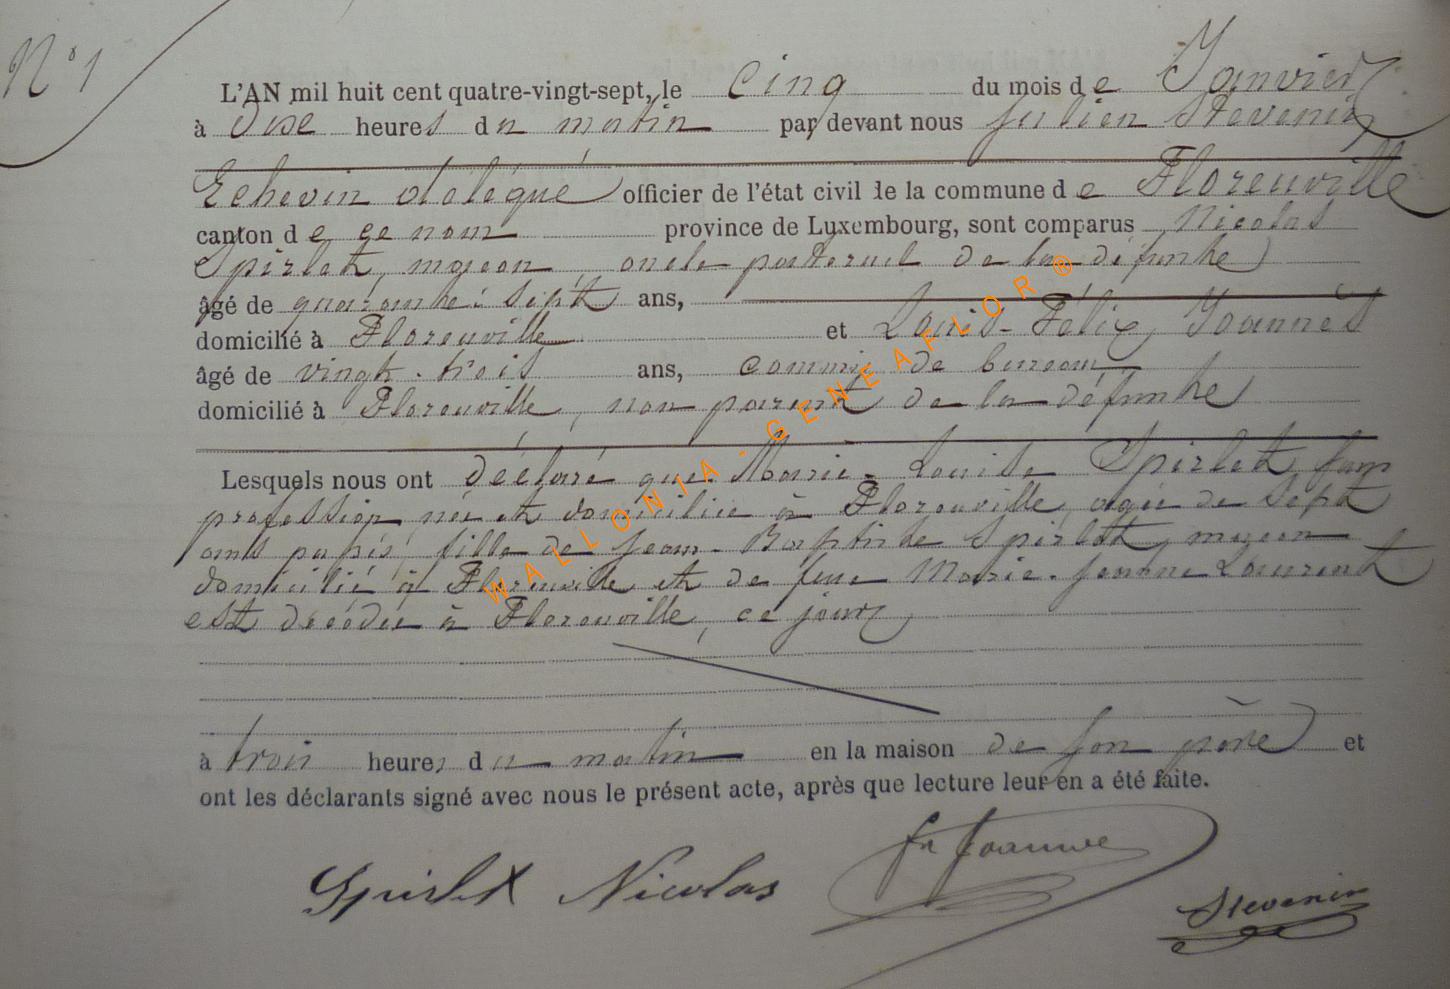 N° 1
L'AN mil huit cent quatre-vingt-sept, le cinq du mois de Janvier
à dix heures du matin par devant nous Julien Stevenin
Echevin délégué officier de l'état civil de la commune de Florenville
canton de ce nom province de Luxembourg, sont comparus Nicolas
Spirlet, maçon, oncle paternel de la défunte
âgé de quarante-sept ans,
domicilié à Florenville et Louis-Félix, Joannès
âgé de vingt-trois ans, commis de bureau
domicilié à Florenville, non parent de la défunte
Lesquels nous ont déclaré que Marie-Louise Spirlet, sans
profession, née et domiciliée à Florenville, agée de sept
ans passés, fille de Jean-Baptiste Spirlet, maçon
domicilié à Florenville et de feue Marie-Jeanne Laurent
est décédée à Florenville, ce jour
à trois heures du matin en la maison de son père et
ont les déclarants signé avec nous le présent acte, après que lecture leur en a été faite.
Spirlet Nicolas Stevenin
WALLONIA - GENEAFLOR ®